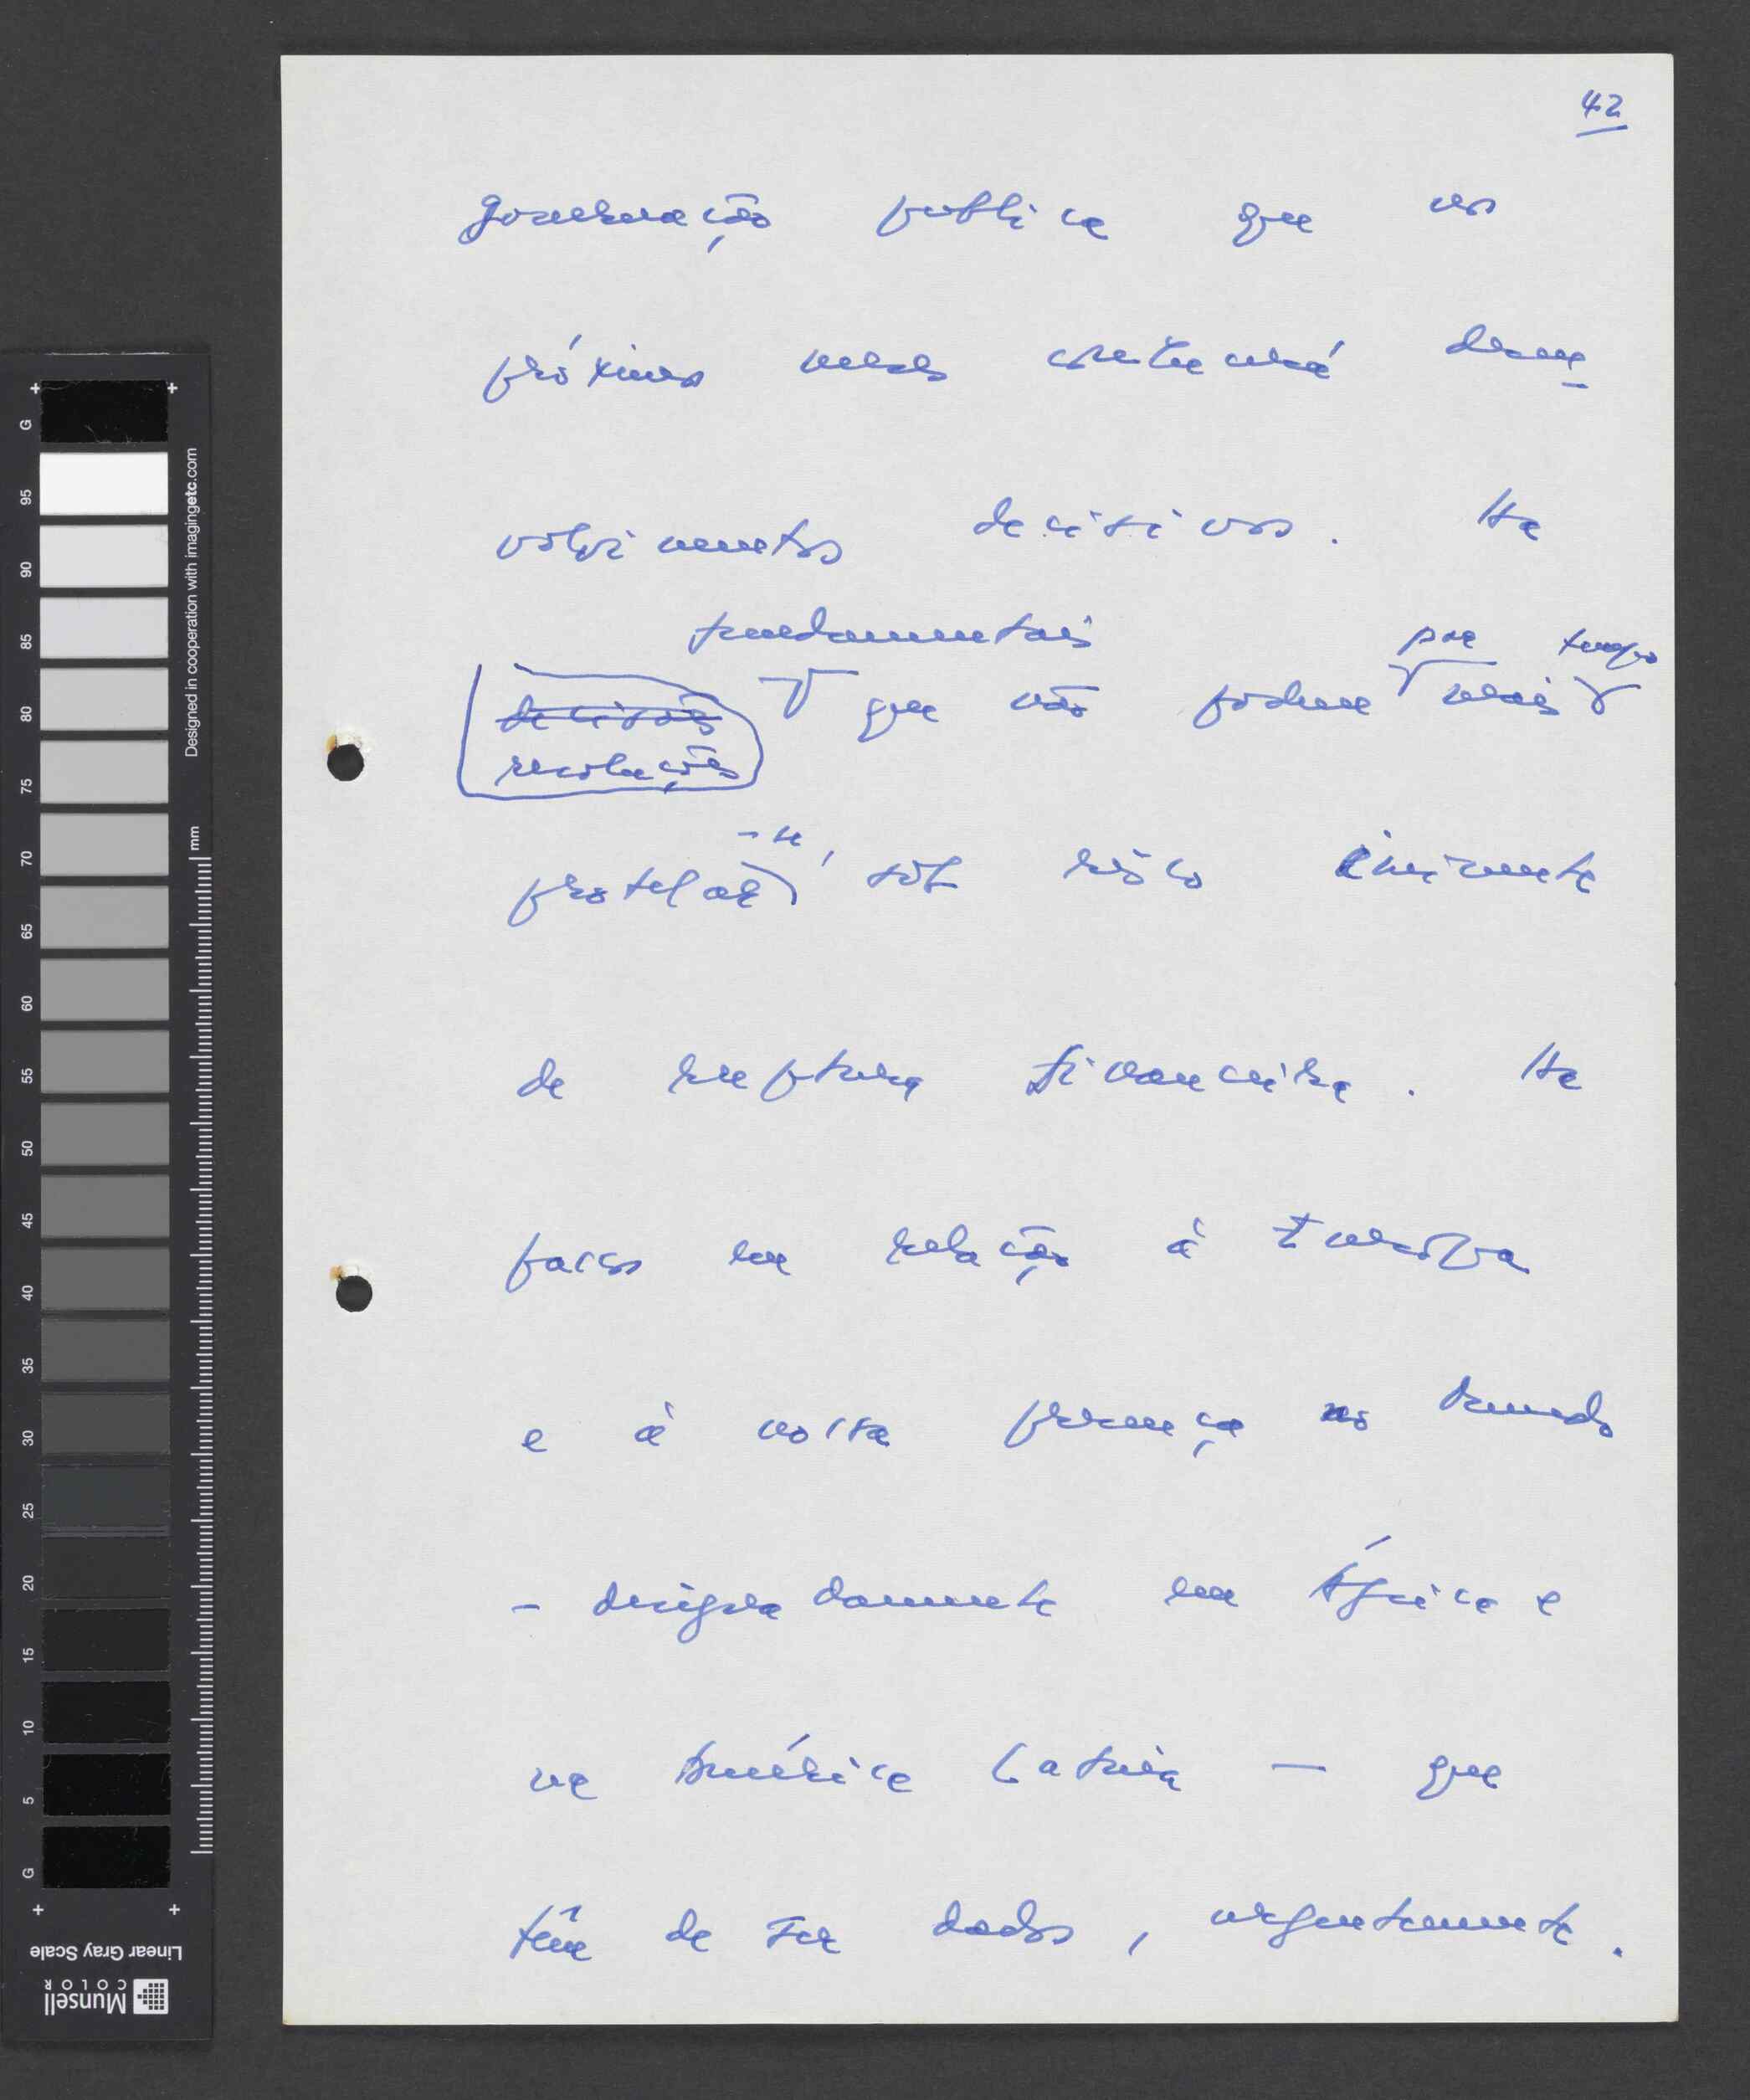 42
governação publica que nos
próximos meses conhecerá desen-
volvimentos decisivos. Ha
fundamentais por tempo
decisões que não podem mais
resoluções
-se,
protelar sob risco iminente
de ruptura financeira. Ha
passos em relação à Europa
e à nossa presença no Mundo
- designadamente em África e
na América Latina — que
têm de ser dados, urgentemente.
G
95
90
85
80
75
70
65
60
55
50
45
40
35
30
25
20
15
10
5
G
mm
Designed in cooperation with imagingetc.com
Linear Gray Scale
Munsell
COLOR